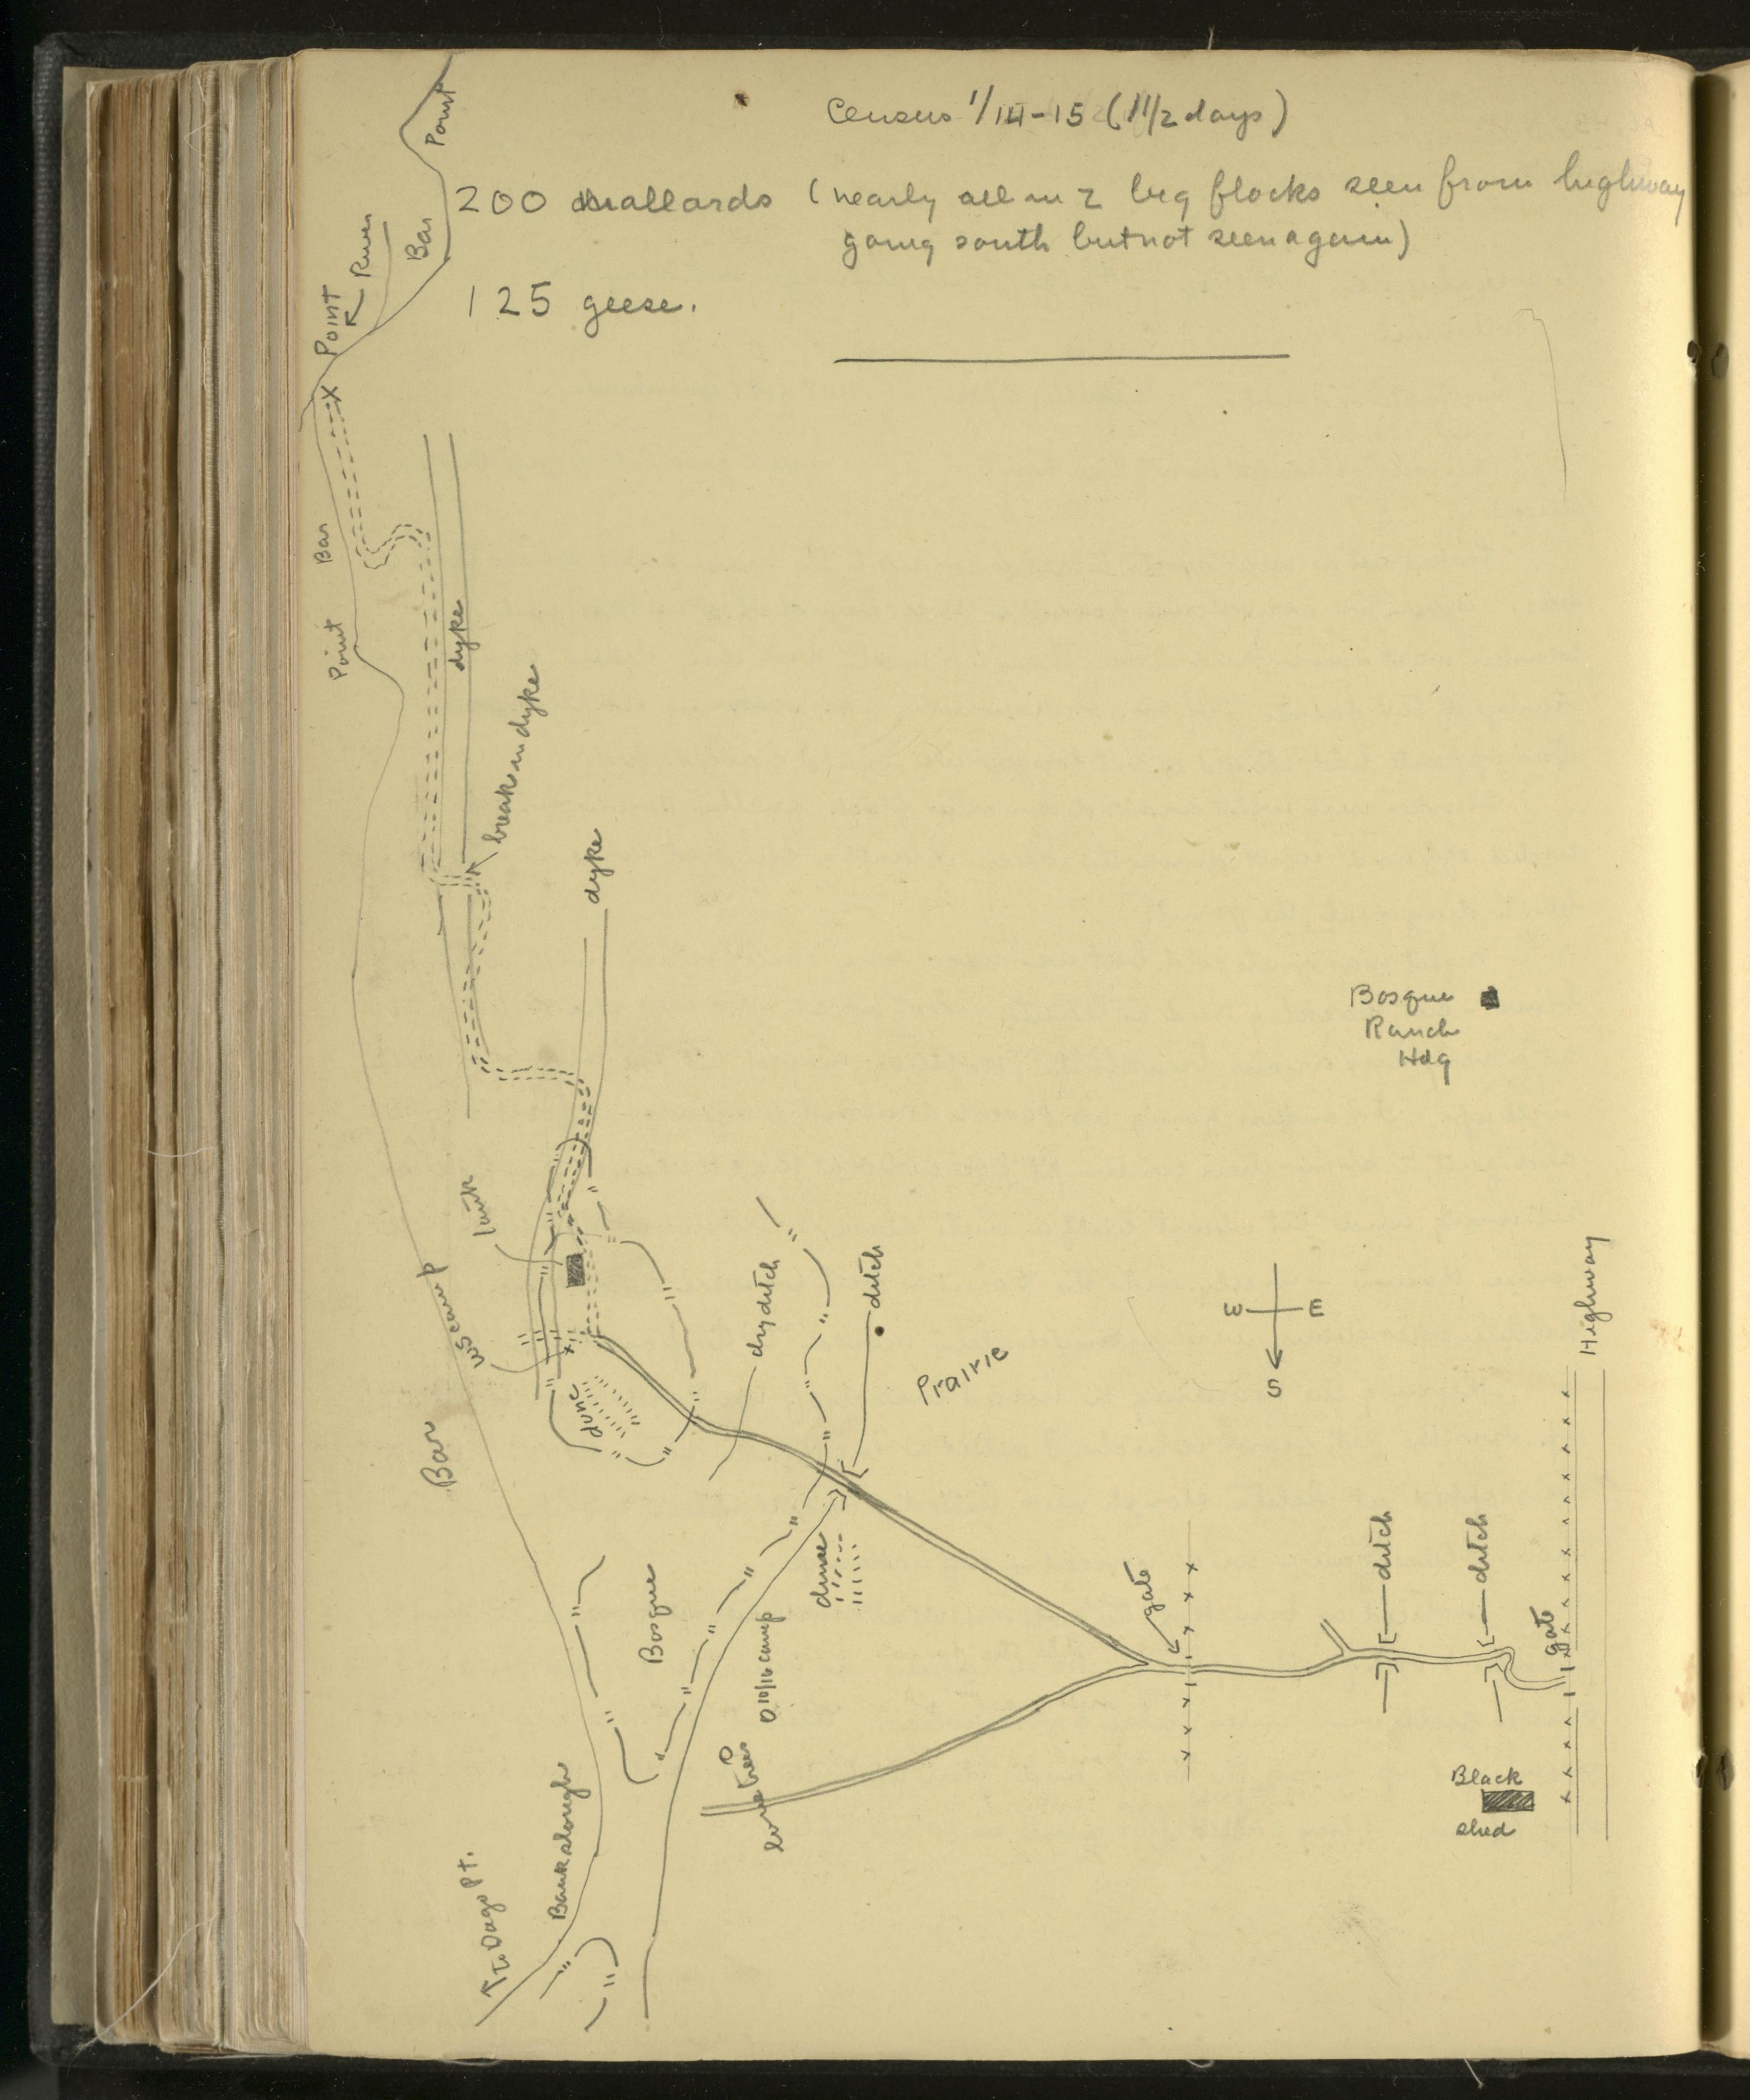 Census 1/14-15 (1 1/2 days)
200 mallards (nearly all in 2 big flocks seen from highway
going south but not seen again)
125 geese.
Point
Bar
River
Point
X
Bar
Point
dyke
break in dyke
dyke
Bosque
Ranch
Hdq
tank
camp
Bar
dune
dry ditch
ditch
Prairie
W E
S
Highway
Bosque
dune
10/16 camp
gate
ditch
ditch
gate
Black
shed
lone trees
Bank slough
To Dago Pt.